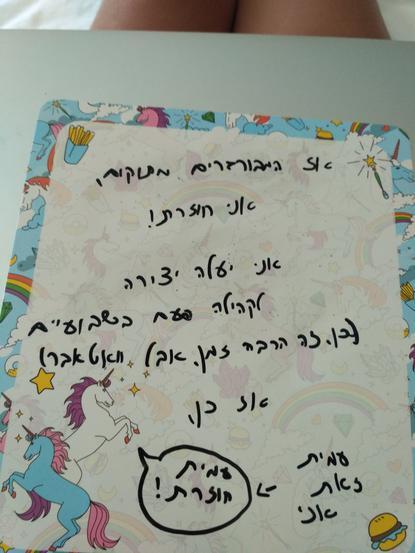 אז המבורגרים מתוקים,
אני חוזרת!
אני יעלה יצירה
לקהילה פעם בשבועיים
(כן. זה הרבה זמן. אבל וואטאבר)
אז כן,
עמית
זאת
אני
←
עמית
חוזרת!